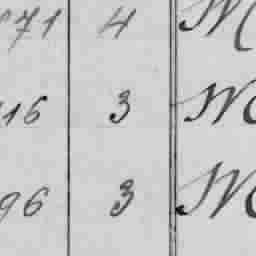 71 4 M
16 3 M
96 3 M